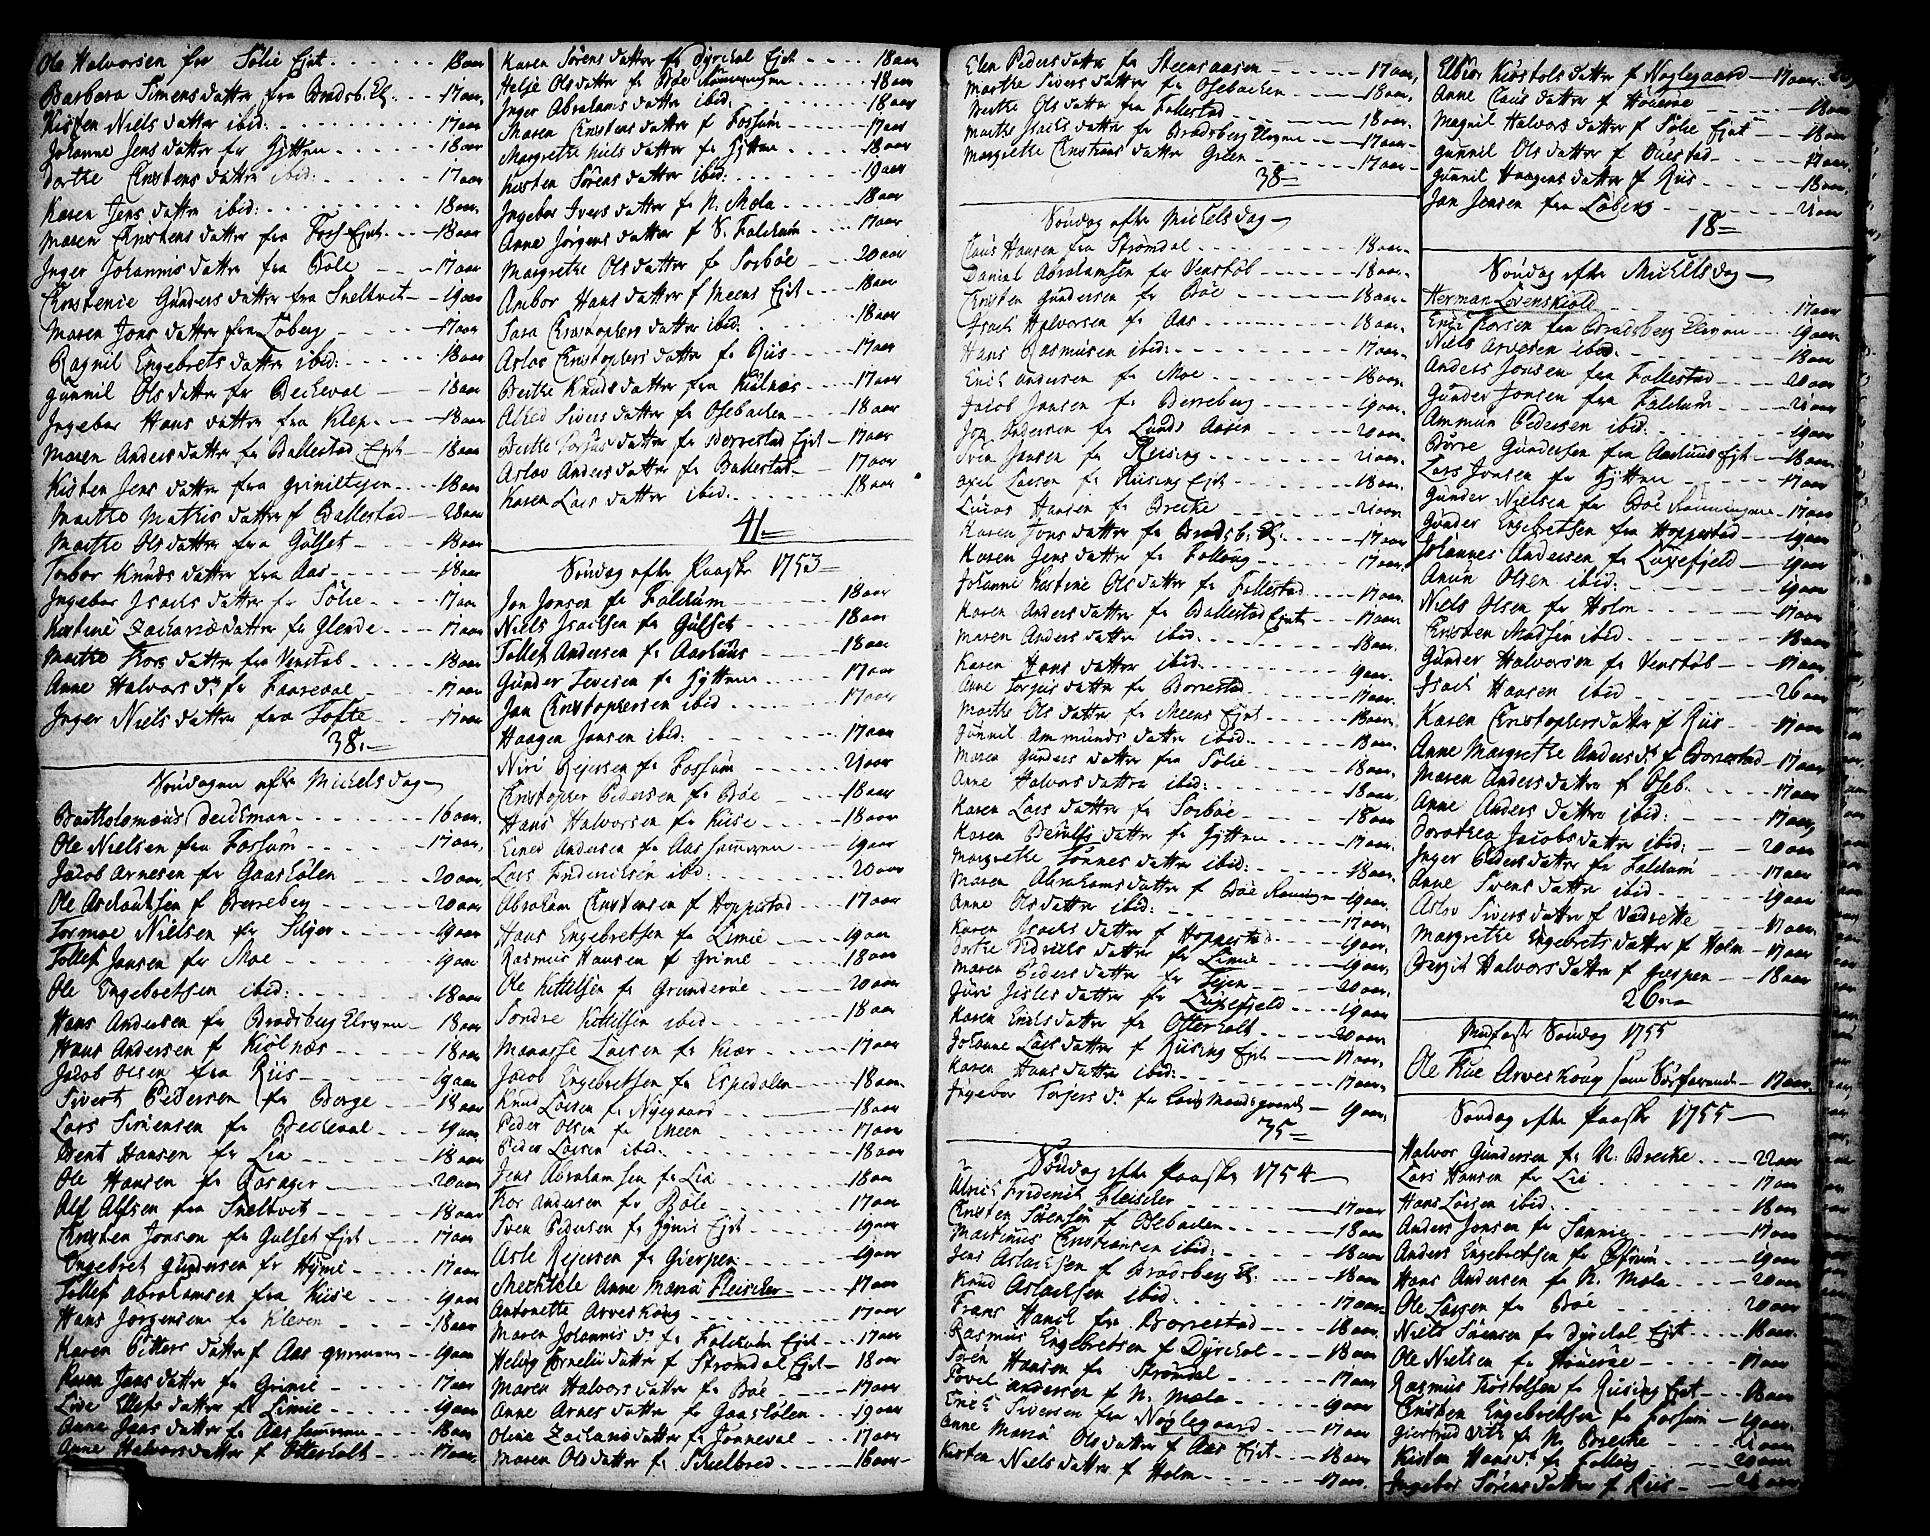 Ole Halvorsen fra Sølie Ejet - 18 aar
Barbara Simensdatter fra Bradsb. El. - 17 aar
Kisten Nielsdatter ibid: - 17 aar
Johanne Jensdatter fr Hytten - 18 aar
Dorthe Christensdatter ibid: - 17 aar
Karen Jensdatter ibid: - 18 aar
Maren Christensdatter fra Foss Ejet - 18 aar
Inger Johannisdatter fra Bøle - 17 aar
Christense Gundersdatter fra Sneltvet - 19 aar
Maren Jonsdatter fra Løberg - 17 aar
Ragnil Engebretsdatter ibid: - 18 aar
Gunnil Olsdatter fr Bechevol - 18 aar
Ingebor Hansdatter fra Klep - 18 aar
Maren Andersdatter fr Ballestad Ejet - 18 aar
Kisten Jensdatter fra Griniltejen - 18 aar
Marthe Mathisdatter f Ballestad - 28 aar
Marthe Olsdatter fra Gulset - 18 aar
Torbor Knudsdatter fra Aas - 18 aar
Ingebor Isachsdatter fr Sølie - 17 aar
Kirstine Zachariædatter fr Glende - 17 aar
Marthe Korsdatter fra Venstøb - 18 aar
Anne Halvorsdr fr Faareval - 17 aar
Inger Nielsdatter fra Tofte - 17 aar
38.
Søndagen efter Michelsdag
Bartholomæus Deichman - 16 aar
Ole Nielsen fra Fossum - 17 aar
Jacob Arnesen fr Gaasholen - 20 aar
Ole Aslaksen f Berreberg - 20 aar
Tormoe Nielsen fr Siljer - 19 aar
Tollef Jansen fr Moe - 19 aar
Ole Engebretsen ibid: - 18 aar
Hans Andersen fr Bradsberg Elven - 18 aar
Hans Andersen f Kiølnæs - 18 aar
Jacob Olsen fra Riis - 19 aar
Sivert Pedersen fra Borge - 18 aar
Lars Simensen fr Bechevol - 19 aar
Bent Hansen fr Lia - 18 aar
Ole Hansen fr Bosager - 20 aar
Alf Alfsen fra Sneltvet - 18 aar
Christen Jonsen fra Gulset Ejet - 17 aar
Engebret Gundersen fr Hyni - 17 aar
Tollef Abrahamsen fra Kise - 19 aar
Hans Jørgensen fr Kleven - 18 aar
Karen Pettersdatter f Aas - 19 aar
Karen Jansdatter fr Grinie - 17 aar
Lise Elefsdatter fr Limie - 19 aar
Anne Jansdatter fr Aas - 18 aar
Anne Halvorsdatter f Otterholt - 17 aar
Karen Sørensdatter fr Dyrekol Ejet - 18 aar
Helje Olsdatter fr Bøe Rønningen - 18 aar
Inger Abrahamsdatter ibid: - 18 aar
Maren Christensdatter f Fossum - 17 aar
Margrethe Nielsdatter fr Hytten - 18 aar
Kirsten Sørensdatter ibid: - 19 aar
Ingebor Iversdatter fr N. Mæla - 18 aar
Anne Jørgensdatter f S. Falchum - 17 aar
Margrethe Olsdatter fr Sorbøe - 20 aar
Anbor Hansdatter f Meens Ejet - 18 aar
Sara Christophersdatter ibid: - 18 aar
Aslov Christophersdatter fr Riis - 17 aar
Berthe Knudsdatter fra Kiølnæs - 17 aar
Alhed Siversdatter fr Osebachen - 18 aar
Berthe Torgusdatter fr Borrestad Ejet - 17 aar
Aslov Andersdatter fr Ballestad - 17 aar
Karen Larsdatter ibid. - 18 aar
41
Søndag efter Paaske 1753
Jon Jonsen fr Falchum - 18 aar
Niels Isachsen fr Gulset - 18 aar
Tollef Andersen fr Aarhuus - 18 aar
Gunder Tevesen fr Hytten - 17 aar
Jan Christophersen ibid - 17 aar
Haagen Jansen ibid: - 17 aar
Niri Rejersen fr Fossum - 21 aar
Christopher Pedersen fr Bøe - 18 aar
Hans Halvorsen fr Kise - 18 aar
Einer Andersen fr Aas - 19 aar
Lars Friderichsen ibid: - 20 aar
Abraham Christensen f Hoppestad - 17 aar
Hans Engebretsen fr Limie - 19 aar
Rasmus Hansen f Grinie - 18 aar
Ole Kittelsen fr Grunderøe - 20 aar
Søndre Kittelsen ibid. - 18 aar
Manasse Larsen fr Kiær - 17 aar
Jacob Engebretsen fr Espedalen - 18 aar
Knud Larsen fr Nygaard - 18 aar
Peder Olsen fr Meen - 17 aar
Peder Larsen ibid. - 18 aar
Jens Abrahamsen fr Lia - 18 aar
Kor Andersen fr Bøle - 17 aar
Sven Pedersen fr Hynis Ejet - 19 aar
Asle Rejersen fr Gierpen - 19 aar
Mechtele Anne Maria Fleischer - 17 aar
Antonette Arveskoug - 17 aar
Maren Johannisdr fr Falchum Ejet - 17 aar
Helvig Corneliidatter f Strømdal Ejet - 18 aar
Maren Halvorsdatter fr Bøe - 17 aar
Anne Arnesdatter fr Gaasholen - 19 aar
Oline Zachariædatter fr Jønneval - 17 aar
Maren Olsdatter fr Skilbred - 16 aar
Elen Pedersdatter fr Steensaasen - 17 aar
Marthe Siversdatter fr Osebachen - 18 aar
Berthe Olsdatter fr Follestad - 18 aar
Marthe Isachsdatter fr Bradsberg Elven - 17 aar
Margrethe Christiansdatter Grien - 17 aar
38
Søndag efter Michelsdag
Claus Hansen fra Strømdal - 18 aar
Daniel Abrahamsen fr Venstøb - 18 aar
Christen Gundersen fr Bøe - 18 aar
Isach Halvorsen fr Aas - 18 aar
Hans Rasmusen ibid: - 17 aar
Erich Andersen fr Moe - 18 aar
Jacob Jansen fr Berreberg - 19 aar
Jon Andersen fr Lunds Aasen - 20 aar
Sven Jansen fr Rising - 21 aar
Axel Larsen fr Riising Ejet - 18 aar
Lucas Hansen fr Brecke - 21 aar
Karen Jonsdatter fr Bradsb. El. - 17 aar
Karen Jensdatter fr Follaug - 17 aar
Johanne Kirstine Olsdatter fr Follestad - 17 aar
Karen Andersdatter fr Ballestad Ejet - 17 aar
Maren Andersdatter ibid. - 18 aar
Karen Hansdatter ibid. - 19 aar
Anne Torgusdatter fr Borrestad - 17 aar
Marthe Olsdatter fr Meens Ejet - 18 aar
Gunnil Ammundsdatter ibid. - 18 aar
Maren Gundersdatter fra Sølie - 18 aar
Anne Halvorsdatter ibid: - 18 aar
Karen Larsdatter fr Sorbøe - 18 aar
Karen Berulfsdatter fr Hytten - 17 aar
Margrethe Tønnesdatter ibid: - 18 aar
Maren Abrahamsdatter f Bøe Rønningen - 19 aar
Anne Olsdatter ibid: - 17 aar
Karen Isachsdatter f Hoppestad - 19 aar
Dorthe Didrichsdatter fr Limie - 19 aar
Maren Pedersdatter fr Tejen - 20 aar
Juri Gislesdatter fr Luxefjeld - 19 aar
Karen Erichsdatter fr Otterholt - 20 aar
Johanne Larsdatter f Riising Ejet - 17 aar
Karen Hansdatter ibid: - 17 aar
Ingebor Torjersdr fr Laugmandsgaard - 19 aar
35
Søndag efter Paaske 1754
Ulrich Friderich Fleischer - 17 aar
Christen Sørensen f Osebachen - 18 aar
Martinus Christiansen ibid: - 18 aar
Jens Aslachsen f Bradsberg El. - 18 aar
Knud Aslachsen ibid. - 17 aar
Frans Hansen fra Borrestad - 18 aar
Rasmus Engebretsen f Dyrekol - 18 aar
Søren Hansen fr Strømdal - 17 aar
Povel Andersen f N. Mæla - 19 aar
Erich Siversen fra Nøglegaard - 17 aar
Anne Maria Olsdatter f Aas Ejet - 18 aar
Kirsten Nielsdatter f Holm - 17 aar
Elbior Kiøstolsdatter f Nøglegaard - 17 aar
Anne Clausdatter f Høuerøe - 18 aar
Magnil Halvorsdatter f Sølie Ejet - 18 aar
Gunnil Olsdatter f Duestad - 17 aar
Gunnil Haagensdatter f Riis - 18 aar
Jan Jensen fra Løberg - 21 aar
18
Søndag efter Michelsdag
Herman Løvenskiold - 17 aar
Erich Korsen fra Bradsberg Elven - 19 aar
Niels Arvesen ibid. - 18 aar
Anders Jonsen fra Follestad - 20 aar
Gunder Jonsen fra Falchum - 21 aar
Ammun Pedersen ibid. - 19 aar
Børre Gundersen fra Aarhuus Ejet - 18 aar
Lars Jonsen fr Hytten - 17 aar
Gunder Nielsen fr Bøe Rønningen - 17 aar
Gunder Engebretsen fra Hoppestad - 19 aar
Johannes Andersen fr Luxefjeld - 19 aar
Anun Olsen ibid. - 19 aar
Niels Olsen fr Holm - 17 aar
Christen Madsen ibid. - 18 aar
Gunder Halvorsen fr Venstøb - 17 aar
Isach Hansen ibid - 26 aar
Karen Christophersdatter f Riis - 17 aar
Anne Margrethe Andersdr f Borrestad - 17 aar
Maren Andersdatter f Oseb. - 17 aar
Anne Andersdatter ibid: - 17 aar
Dorothea Jacobsdatter ibid: - 20 aar
Inger Pedersdatter fr Falchum - 17 aar
Anne Svensdatter ibid. - 19 aar
Aslov Siversdatter f Vadrette - 17 aar
Margrethe Engebretsdatter f Holm - 17 aar
Birgit Halvorsdatter f Gierpen - 18 aar
26
Midfaste Søndag 1755
Ole Rue Arveskoug som Søefarende - 17 aar
Søndag efter Paaske 1755
Halvor Gundersen fr N. Brecke - 22 aar
Lars Hansen fr Lie - 17 aar
Hans Larsen ibid. - 18 aar
Anders Jonsen fr Sannie - 17 aar
Anders Engebretsen fr - 19 aar
Hans Andersen fr N. Mæla - 20 aar
Ole Larsen fr Bøe - 20 aar
Niels Sørensen fr Dyrekol Ejet - 18 aar
Ole Nielsen fr Høuerøe - 17 aar
Rasmus Kiøstolsen fr Riising Ejet - 18 aar
Christen Engebretsen fr Fossum - 19 aar
Giertrud fr N. Brecke - 21 aar
Kisten Hansdr fr Follaug - 20 aar
Ingebor Sørensdatter f Riis - 21 aar